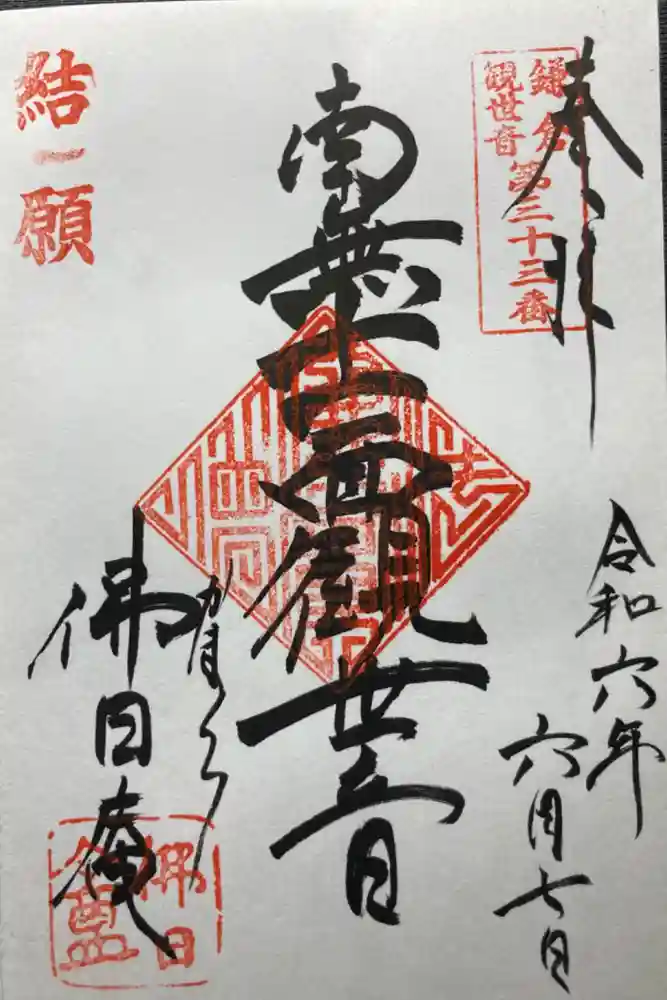 奉拝
鎌倉
観世音
第三十三番
令和六年
六月七日
南無十一面觀世音
かまくら
佛日庵
佛日
盦
結願